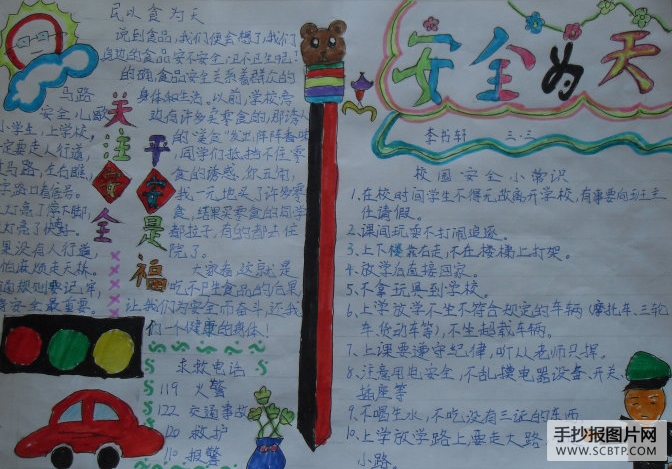 民以食为天
说到食品,我们便会想了,我们
身边的食品安不安全,卫不卫生呢?
的确,食品安全关系着群众的
身体和生活。以前,学校旁
边有许多买零食的,那诱人
的“美食”发出阵阵香味
同学们抵挡不住零
食的诱惑,你五角,
我一元地买了许多零
食,结果买零食的同学
都拉子,有的都去住
院了。
大家看,这就是
吃不卫生食品的后果
让我们为安全而奋斗,还我
们一个健康的身体!
马路
安全儿歌
小学生,上学校,
定要走人行道,
过马路,左右瞧,
字路口看信号。
灯亮了停下脚,
灯亮了快跑。
果没有人行道,
他麻烦走天桥。
通规则要记牢,
着安全最重要。
关注安全
平安是福
求救电话
119 火警
122 交通事故
120 救护
110 报警
安全为天
李书轩 三·三
校园·安全小常识
1、在校时间学生不得无故离开学校,有事要向班主
任请假。
2、课间玩耍不打闹追逐。
3、上下楼靠右走,不在楼梯上打架。
4、放学后直接回家。
5、不拿玩具到学校。
6、上学放学不坐不符合规定的车辆(摩托车、三轮
车、低动车等),不坐超载车辆。
7、上课要遵守纪律,听从老师只挥。
8、注意用电安全,不乱摸电器设备、开关、
插座等
9、不喝生水,不吃没有三证的东西
10、上学放学路上要走大路
小路。
手抄报图片网
WWW.SCBTP.COM